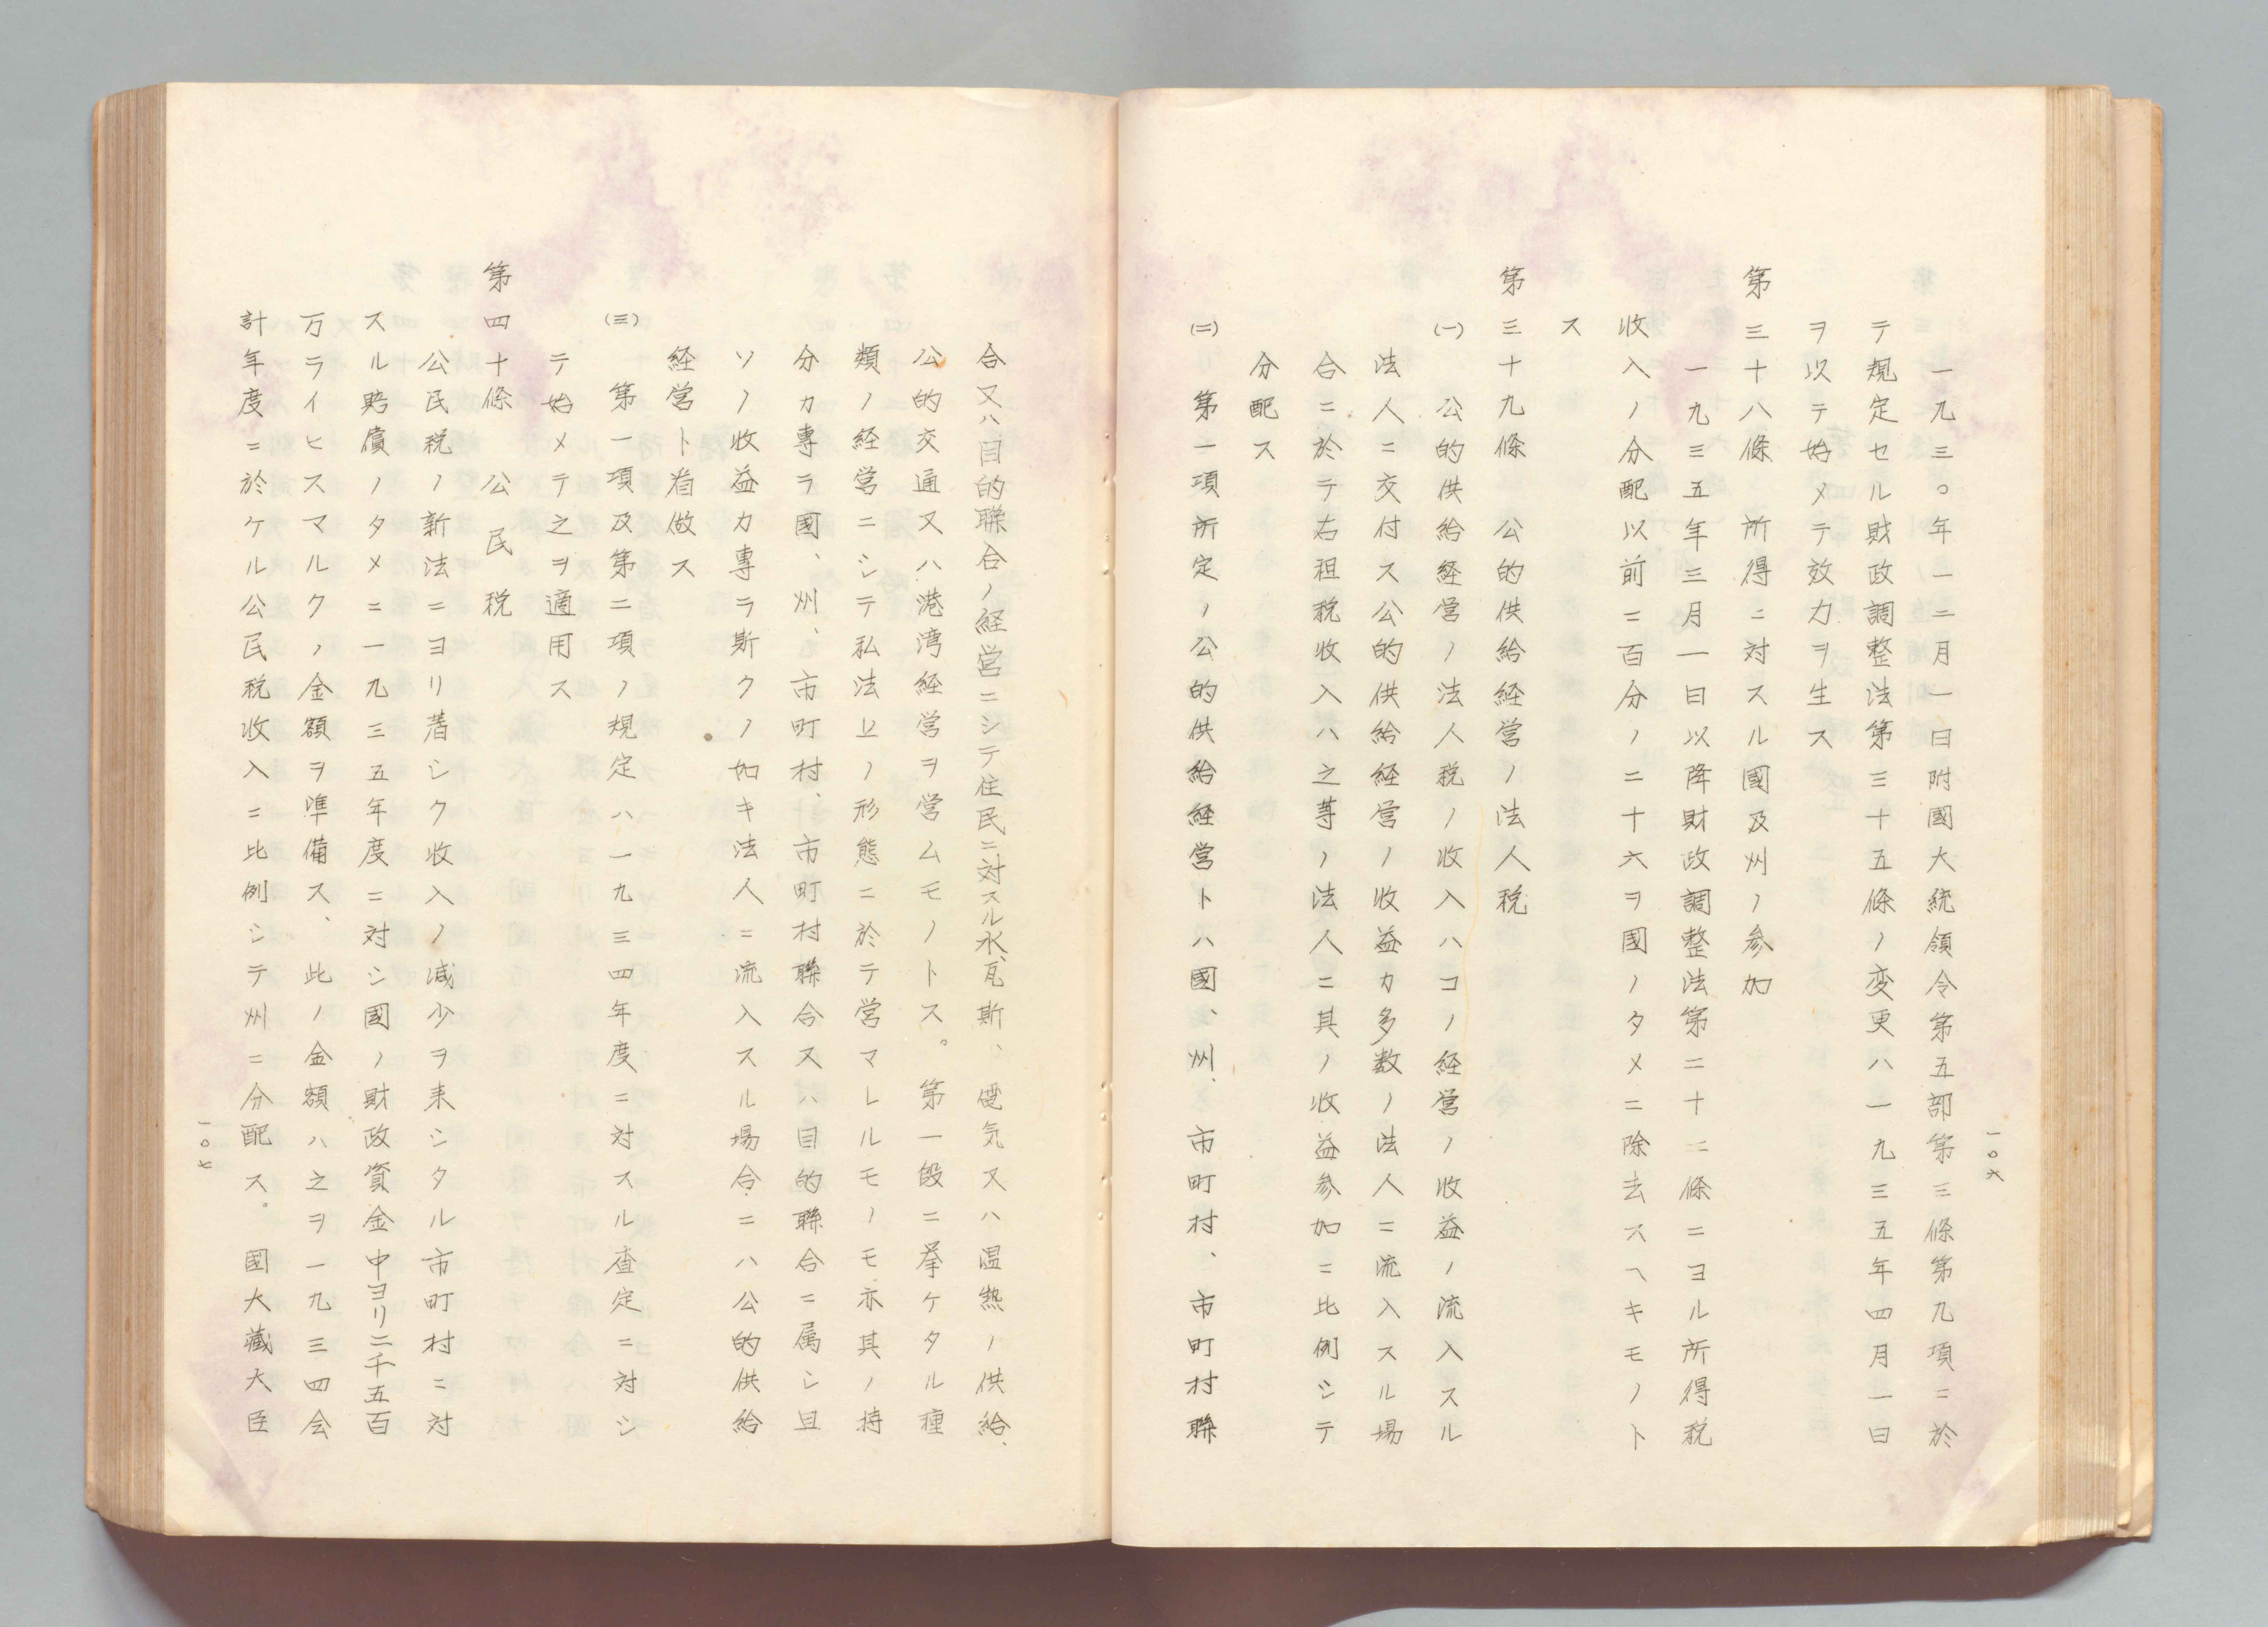 一〇六
一九三〇年一二月一日附國大統領令第五部第三條第九項ニ於
テ規定セル財政調整法第三十五條ノ変更ハ一九三五年四月一日
ヲ以テ始メテ效力ヲ生ス
第三十八條　所得ニ対スル國及州ノ参加
一九三五年三月一日以降財政調整法第二十二條ニヨル所得税
收入ノ分配以前ニ百分ノ二十六ヲ國ノタメニ除去スヘキモノト
ス
第三十九條　公的供給経営ノ法人税
㈠　公的供給経営ノ法人税ノ收入ハコノ経営ノ收益ノ流入スル
法人ニ交付ス公的供給経営ノ收益カ多数ノ法人ニ流入スル場
合ニ於テ右租税收入ハ之等ノ法人ニ其ノ收益参加ニ比例シテ
分配ス
㈡　第一項所定ノ公的供給経営トハ國、州、市町村、市町村聯
合又ハ目的聯合ノ経営ニシテ住民ニ対スル水、瓦斯、電気又ハ温熱ノ供給、
公的交通又ハ港湾経営ヲ営ムモノトス。第一段ニ挙ケタル種
類ノ経営ニシテ私法上ノ形態ニ於テ営マレルモノモ亦其ノ持
分カ專ラ國、州、市町村、市町村聯合又ハ目的聯合ニ属シ且
ソノ收益カ專ラ斯クノ如キ法人ニ流入スル場合ニハ公的供給
経営ト看做ス
㈢　第一項及第二項ノ規定ハ一九三四年度ニ対スル査定ニ対シ
テ始メテ之ヲ適用ス
第四十條　公民税
公民税ノ新法ニヨリ著シク收入ノ減少ヲ来シタル市町村ニ対
スル賠償ノタメニ一九三五年度ニ対シ國ノ財政資金中ヨリ二千五百
万ライヒスマルクノ金額ヲ準備ス、此ノ金額ハ之ヲ一九三四会
計年度ニ於ケル公民税收入ニ比例シテ州ニ分配ス。國大藏大臣
一〇七